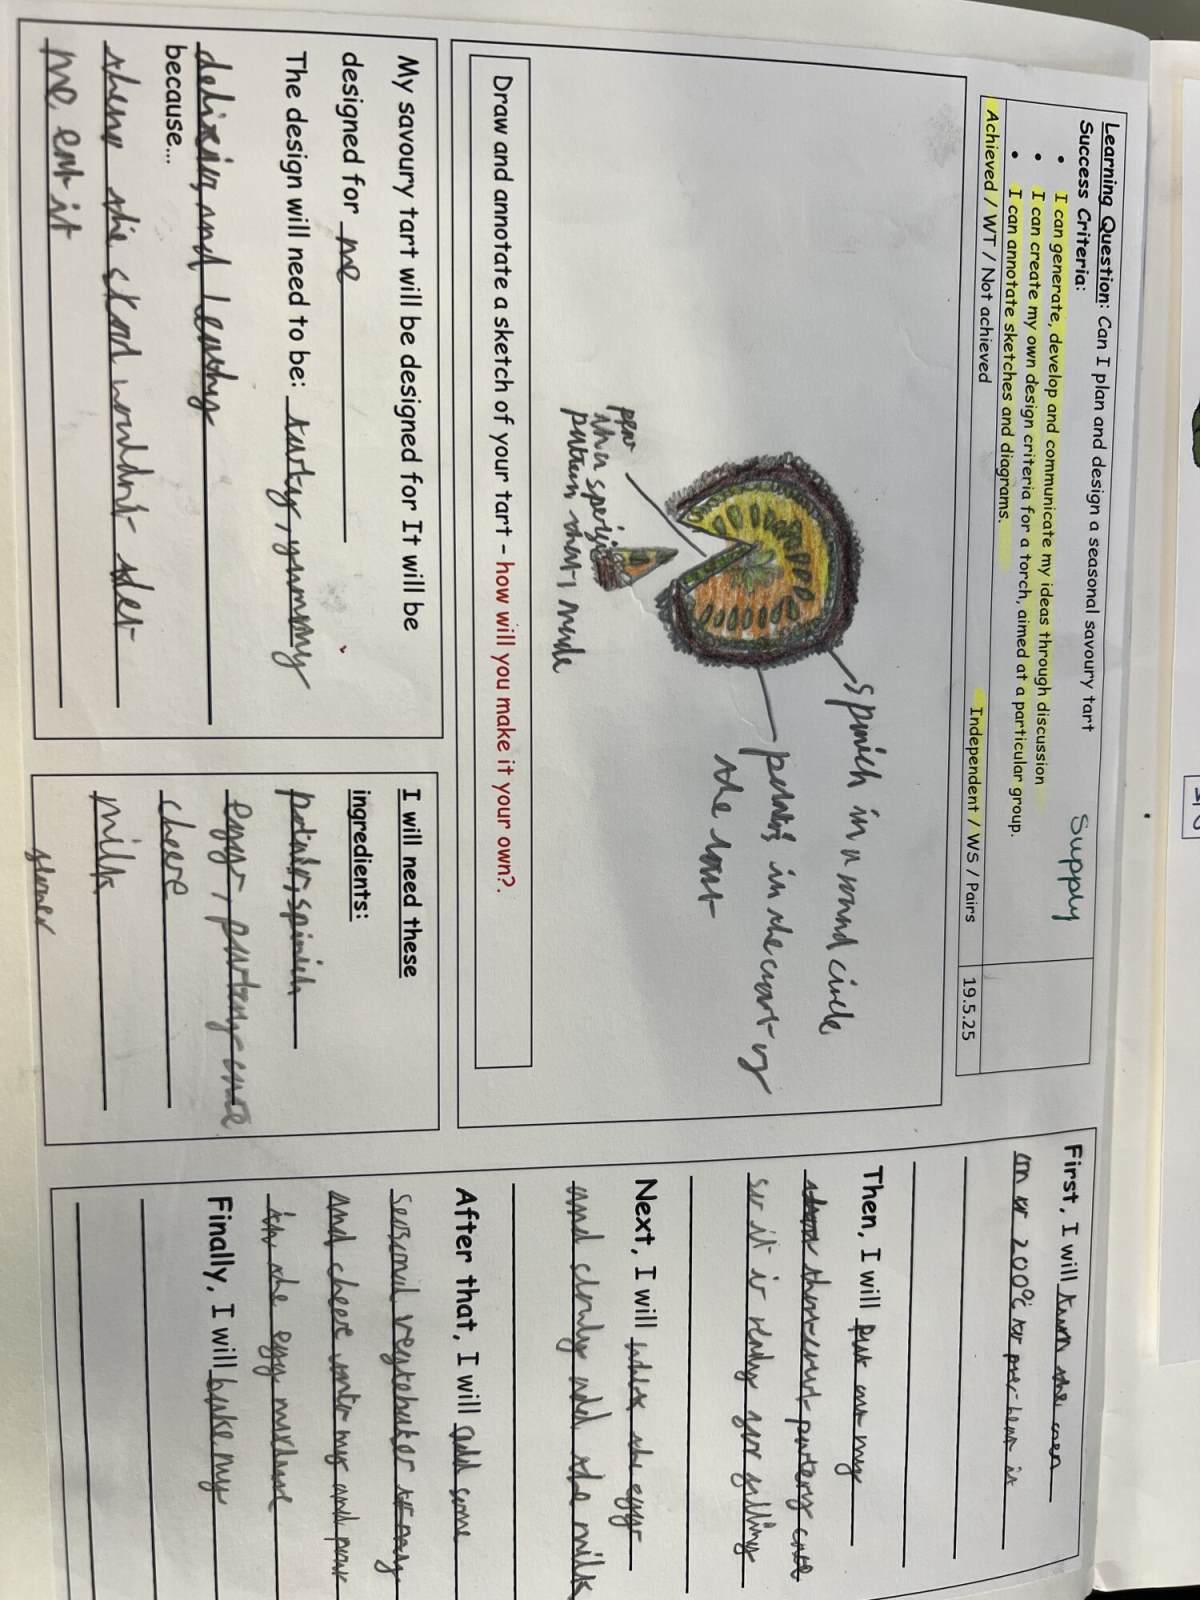 Learning Question: Can I plan and design a seasonal savoury tart
Success Criteria:
Supply
• I can generate, develop and communicate my ideas through discussion
• I can create my own design criteria for a torch, aimed at a particular group.
• I can annotate sketches and diagrams.
Achieved / WT / Not achieved
Independent / WS / Pairs
19.5.25
spinich in a round circle
in the
the
pattern that I made
Draw and annotate a sketch of your tart - how will you make it your own?.
My savoury tart will be designed for It will be
designed for me
The design will need to be: yummy
and
because...
me eat it
I will need these
ingredients:
spinich
eggs,
cheese
milk
First, I will turn the oven
on to 200°c to pre-heat it
Then, I will put out my
short-crust pastery case
so it is ready for filling
Next, I will whisk the eggs
and slowly add the milk
After that, I will add some
and cheese into my and pour
in the egg mixture
Finally, I will bake my